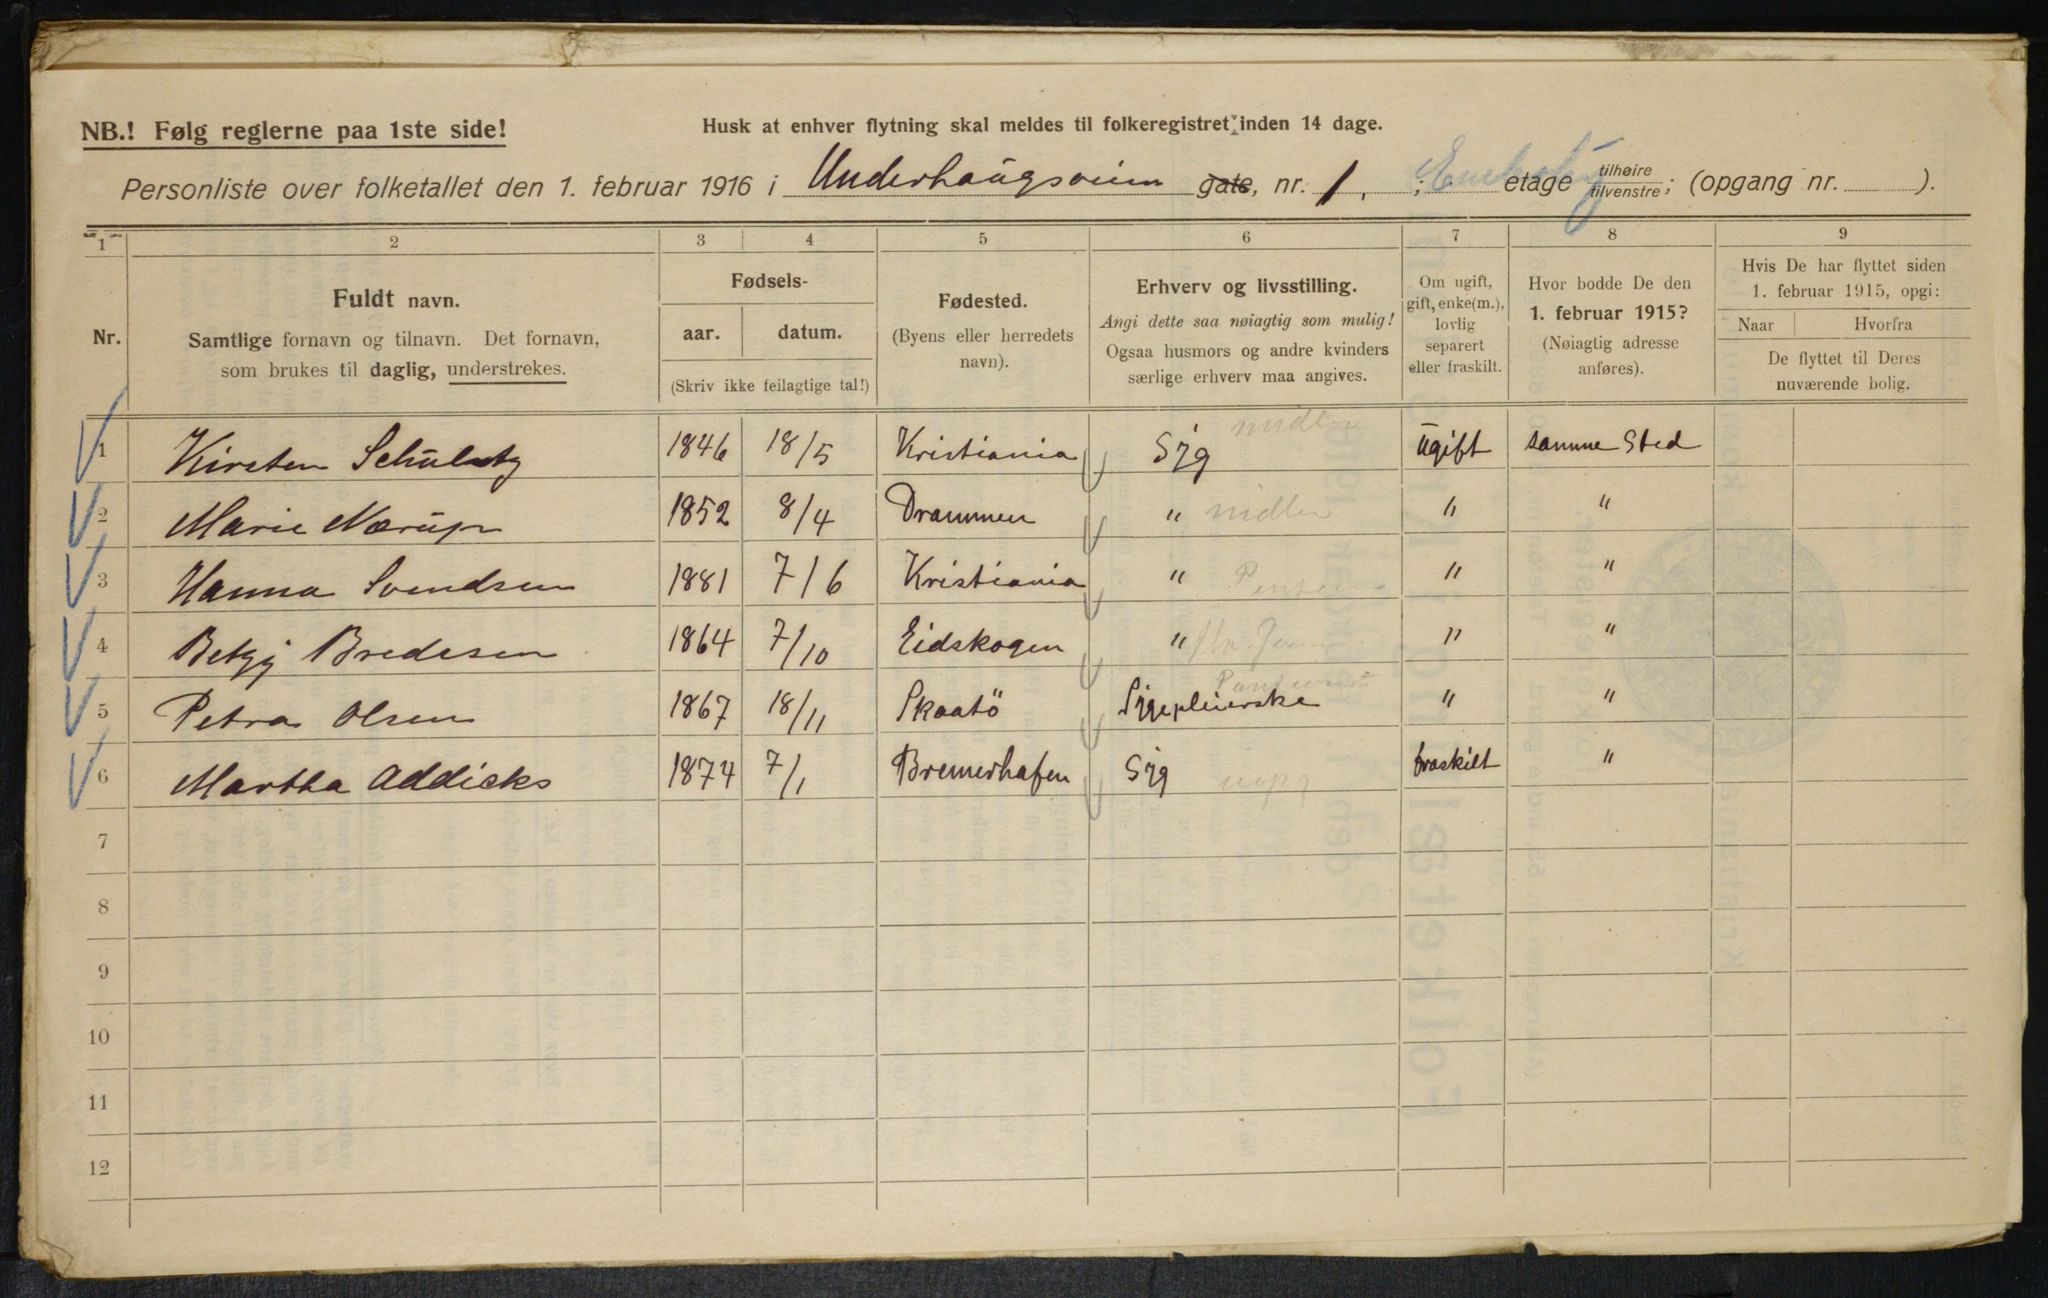 NB.! Følg reglerne paa 1ste side!
Husk at enhver flytning skal meldes til folkeregistret inden 14 dage.
Personliste over folketallet den 1. februar 1916 i Underhaugsveien gate, nr. 1, ; etage tilhøire tilvenstre; (opgang nr. ).
1 2 3 4 5 6 7 8 9
Nr.
Fuldt navn.
Samtlige fornavn og tilnavn. Det fornavn,
som brukes til daglig, understrekes.
Fødsels-
aar. datum.
(Skriv ikke feilagtige tal!)
Fødested.
(Byens eller herredets
navn).
Erhverv og livsstilling.
Angi dette saa nøiagtig som mulig!
Ogsaa husmors og andre kvinders
særlige erhverv maa angives.
Om ugift,
gift, enke(m.),
lovlig
separert
eller fraskilt.
Hvor bodde De den
1. februar 1915?
(Nøiagtig adresse
anføres).
Hvis De har flyttet siden
1. februar 1915, opgi:
Naar Hvorfra
De flyttet til Deres
nuværende bolig.
midler
1 Kirsten Schultz 1846 18/5 Kristiania Syg ugift samme Sted
2 Marie Nærup 1852 8/4 Drammen " midler " "
3 Hanna Svendsen 1881 7/6 Kristiania " " "
4 Betzy Bredesen 1864 7/10 Eidskogen " " "
5 Petra Olsen 1867 18/11 Skaatö Sygepleierske " "
6 Martha Addicks 1874 7/1 Bremerhafen Syg fraskilt "
7
8
9
10
11
12